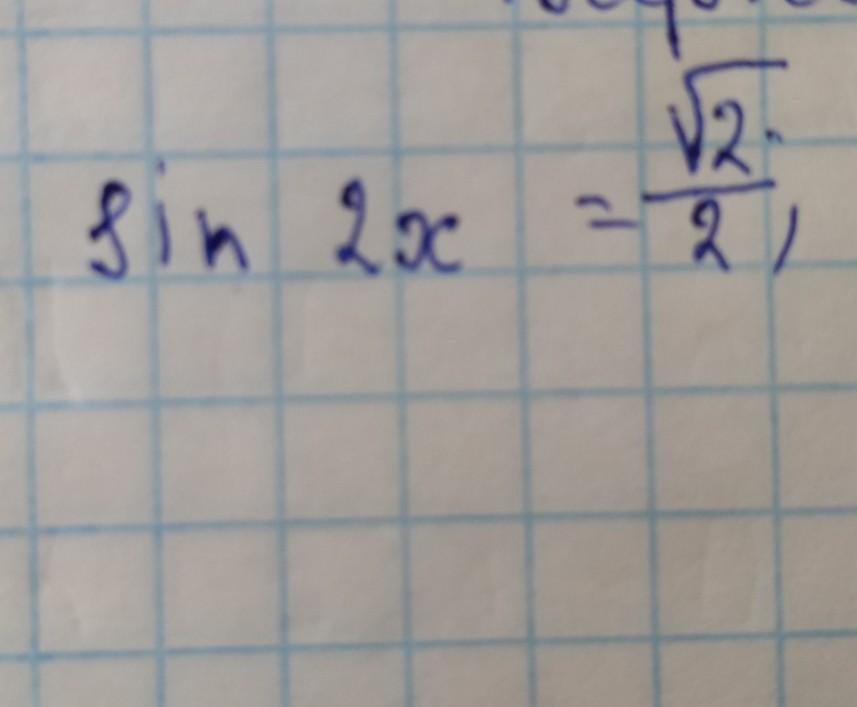 sin 2x = √2/2,